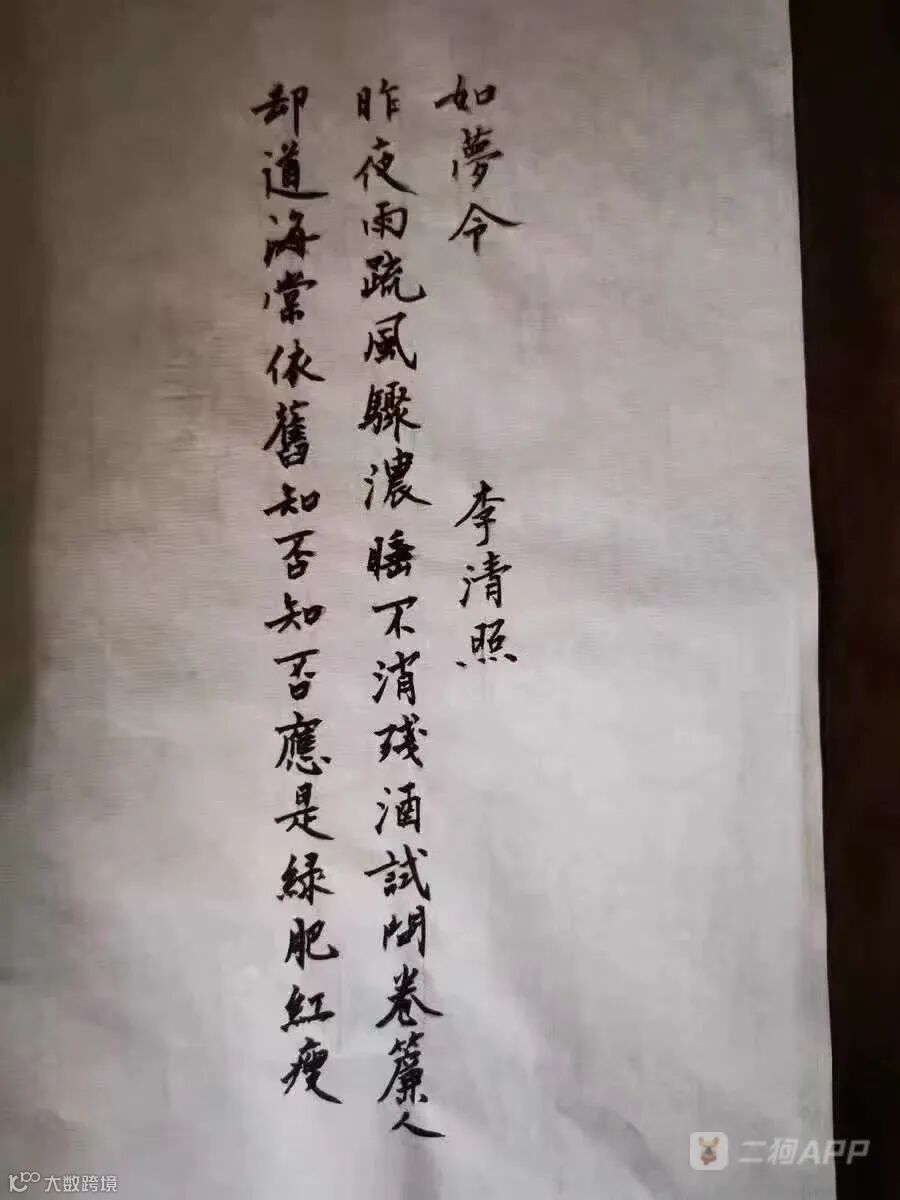 如夢令
李清照
昨夜雨疏風驟濃睡不消殘酒試問卷簾人
却道海棠依舊知否知否應是綠肥紅瘦
二狗APP
大数跨境